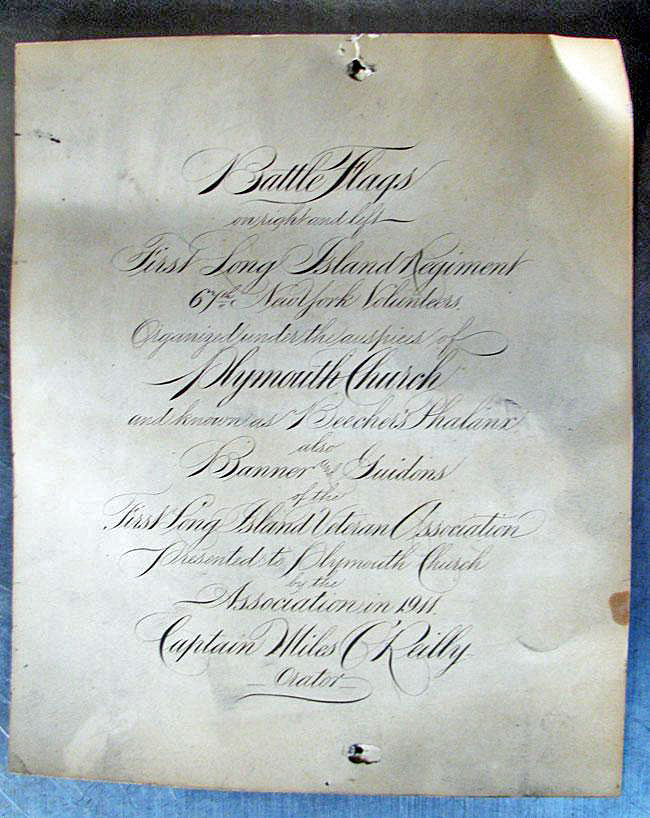 Battle Flags
on right and left
First Long Island Regiment
67th New York Volunteers.
Organized under the auspices of
Plymouth Church
and known as Beecher's Phalanx
also
Banner and Guidons
of the
First Long Island Veteran Association
Presented to Plymouth Church
by the
Association in 1911
Captain Miles O'Reilly
Orator